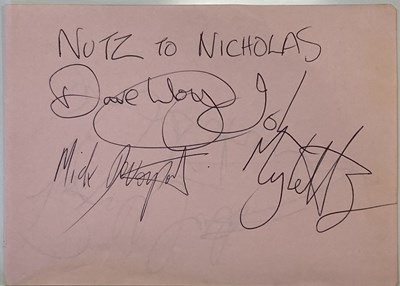 NUTZ TO NICHOLAS
Dave Lloyd John
Mick Devonport Mylett